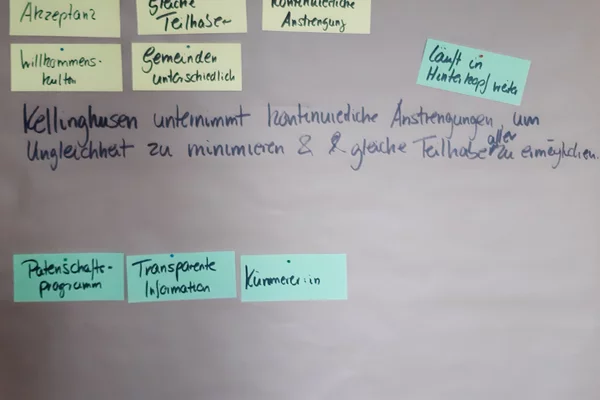 Akzeptanz
gleiche
Teilhabe
kontinuierliche
Anstrengung
Willkommens-
kultur
Gemeinden
unterschiedlich
läuft im
Hinterkopf weiter
Kellinghusen unternimmt kontinuierliche Anstrengungen, um
Ungleichheit zu minimieren & & gleiche Teilhabe aller zu ermöglichen.
Patenschafts-
programm
Transparente
Information
Kümmerer:in